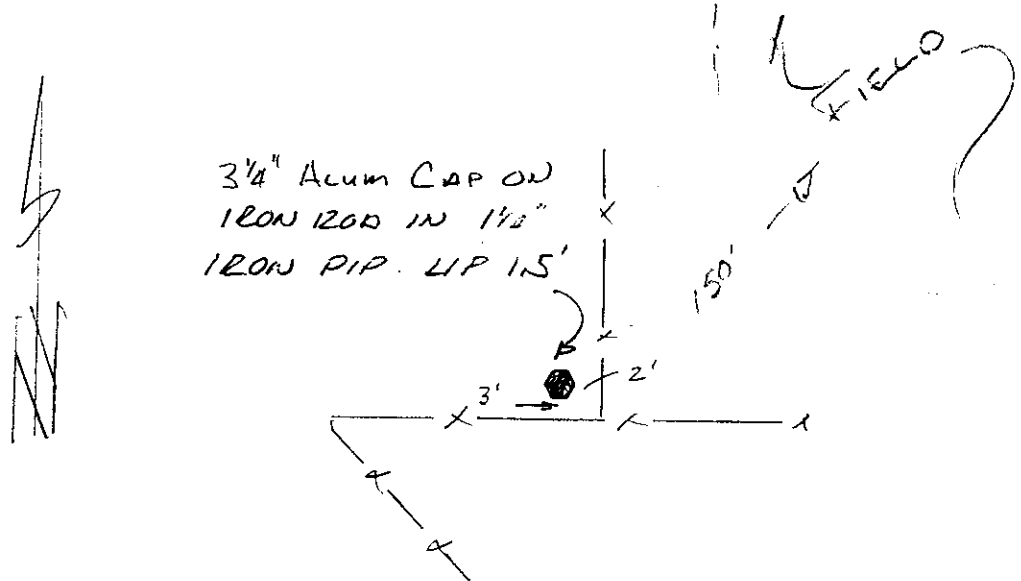 FIELD
3¼" ALUM CAP ON
IRON ROD IN
IRON PIP. UP 1.5'
150'
2'
3'
N